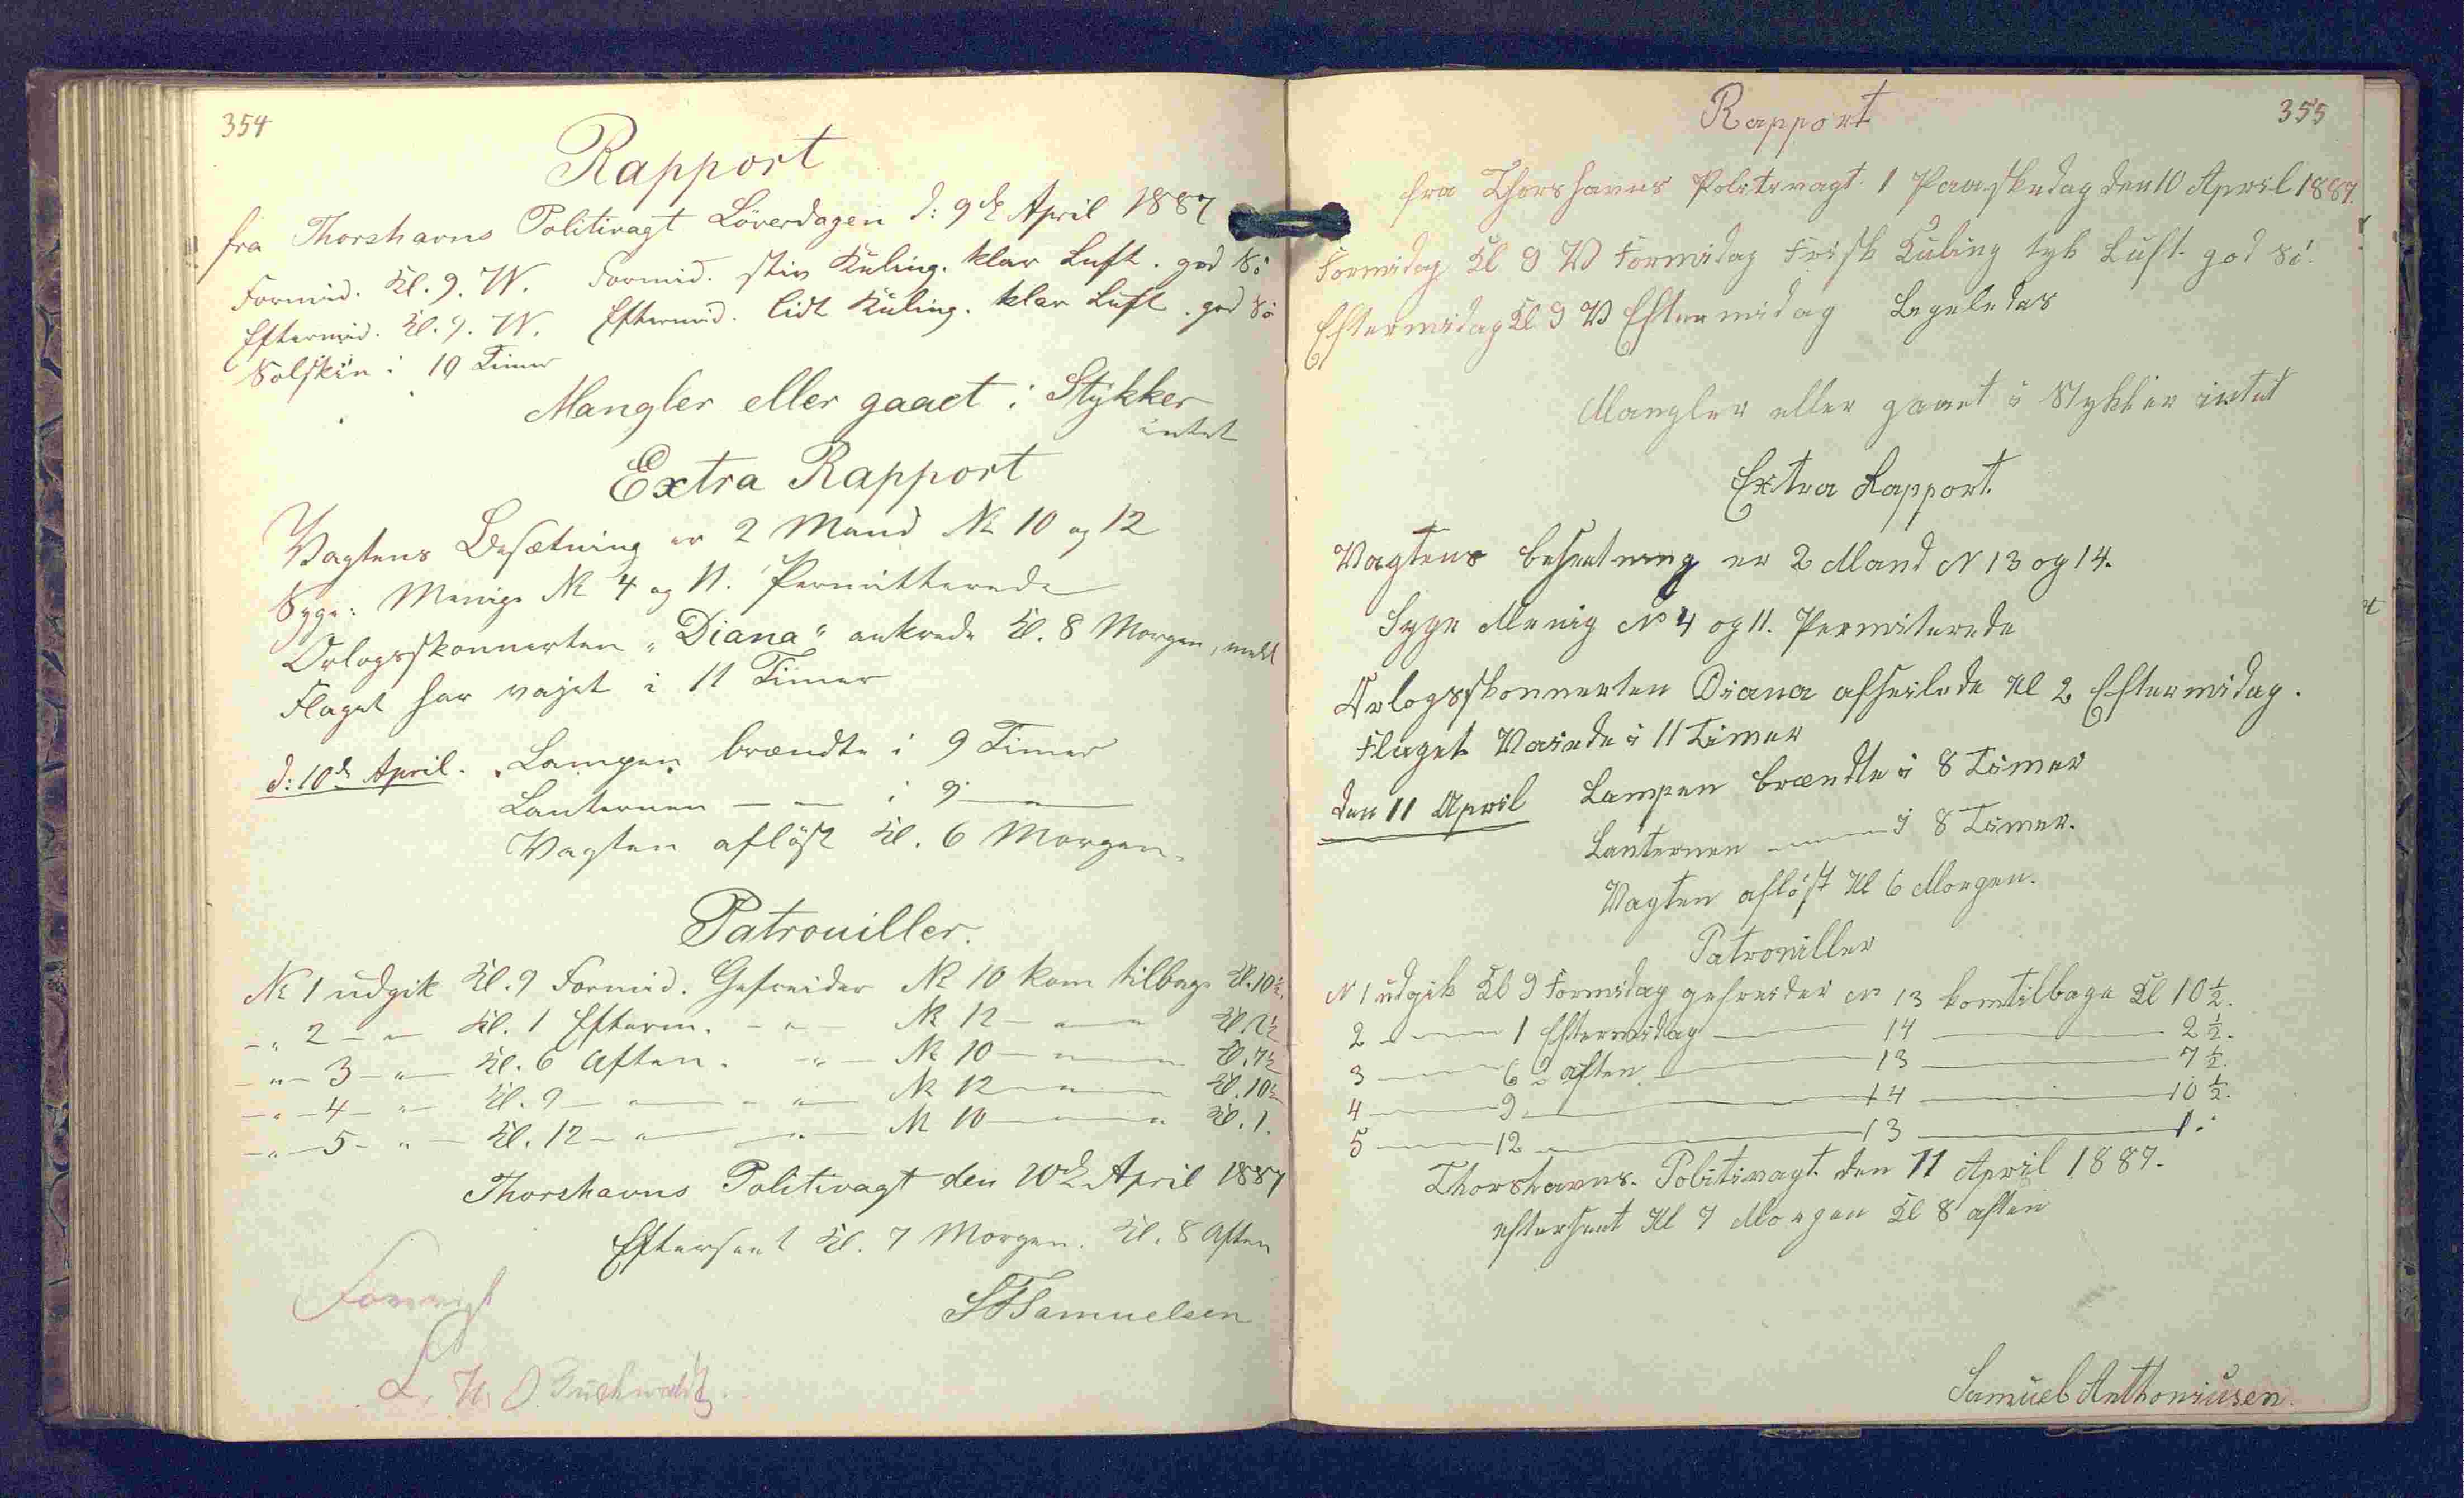 354
Rapport
fra Thorshavns Politivagt Löverdagen d: 9de April 1887
Formid. Kl. 9. W. Formid. stiv Kuling. klar Luft. god Sö
Eftermid. Kl. 9. W. Eftermid. lidt Kuling. klar Luft. god Sö
Solskin i 10 Timer
Mangler eller gaaet i Stykker
intet
Extra Rapport
Vagtens Besætning er 2 Mand No 10 og 12
Syge: Menige No 4 og 11. Permitterede
Orlogsskonnerten "Diana" ankrede Kl. 8 Morgen, meldt
Flaget har vajet i 11 Timer
d: 10de April. Lampen brændte i 9 Timer
Lanternen — — i 9 —
Vagten aflöst Kl. 6 Morgen.
Patrouiller.
No 1 udgik Kl. 9 Formid. Gefreider No 10 kom tilbage Kl. 10½.
— " 2 — " — Kl. 1 Efterm. — " — No 12 — " — Kl. 2½
— " — 3 — " — Kl. 6 Aften. — " — No 10 — " — Kl. 7½
— " — 4 — " — Kl. 9 — " — " — No 12 — " — Kl. 10½
— " — 5 — " — Kl. 12 — " — " — No 10 — " — Kl. 1.
Thorshavns Politivagt den 10de April 1887
Efterseet Kl. 7 Morgen. Kl. 8 Aften
Samuelsen
355
Rapport
fra Thorshavns Politivagt 1 Paaskedag den 10 April 1887.
Formidag Kl 9 V Formidag Frisk Kuling tyk Luft god Sö.
Eftermidag Kl 9 V Eftermidag Ligeledes
Mangler eller gaaet i Stykker intet
Extra Rapport.
Vagtens besætning er 2 Mand N 13 og 14.
Syge Menig No 4 og 11. Permiterede
Orlogsskonnerten Diana afseilede Kl 2 Eftermidag.
Flaget Vaiede i 11 Timer
den 11 April Lampen brændte i 8 Timer
Lanternen — i 8 Timer.
Vagten aflöst Kl 6 Morgen.
Patrouiller
N 1 udgik Kl 9 Formidag gefreider No 13 kom tilbage Kl 10½.
2 — 1 Eftermidag — 14 — 2½.
3 — 6 i aften — 13 — 7½.
4 — 9 — 14 — 10½.
5 — 12 — 13 — 1.
Thorshavns. Politivagt den 11 April 1887.
efterseet Kl 7 Morgen Kl 8 aften
Samuel Anthoniusen.